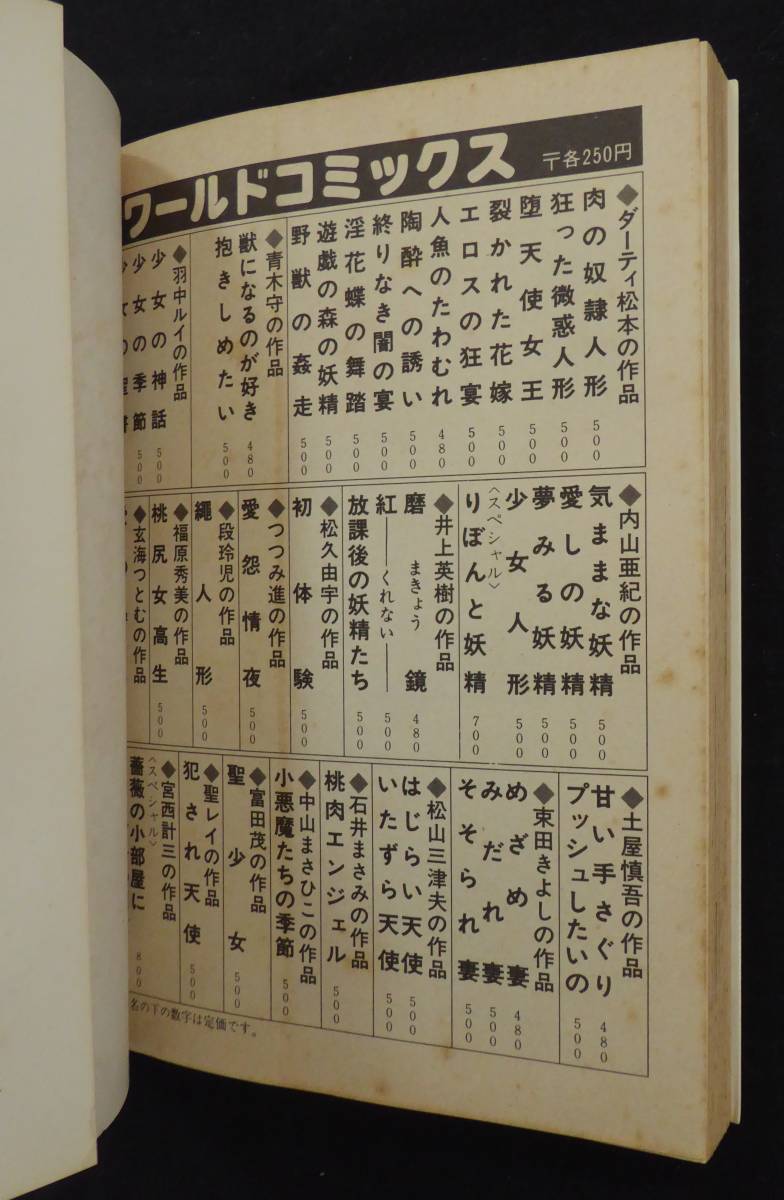 ワールドコミックス
〒各250円
◆ダーティ松本の作品
肉の奴隷人形 500
狂った微惑人形 500
堕天使女王 500
裂かれた花嫁 500
エロスの狂宴 500
人魚のたわむれ 480
陶酔への誘い 500
終りなき闇の宴 500
淫花蝶の舞踏 500
遊戯の森の妖精 500
野獣の姦走 500
◆青木守の作品
獣になるのが好き 480
抱きしめたい 500
◆羽中ルイの作品
少女の神話 500
少女の季節 500
少女の聖書
◆内山亜紀の作品
気ままな妖精 500
愛しの妖精 500
夢みる妖精 500
少女人形 500
〈スペシャル〉
りぼんと妖精 700
◆井上英樹の作品
磨鏡 まきょう 480
紅――くれない―― 500
放課後の妖精たち 500
◆松久由宇の作品
初体験 500
◆つつみ進の作品
愛怨情夜 500
◆段玲児の作品
縄人形 500
◆福原秀美の作品
桃尻女高生 500
◆玄海つとむの作品
◆土屋慎吾の作品
甘い手さぐり 480
プッシュしたいの 500
◆束田きよしの作品
めざめ妻 480
みだれ妻 500
そそられ妻 500
◆松山三津夫の作品
はじらい天使 500
いたずら天使 500
◆石井まさみの作品
桃肉エンジェル 500
◆中山まさひこの作品
小悪魔たちの季節 500
◆富田茂の作品
聖少女 500
◆聖レイの作品
犯され天使 500
◆宮西計三の作品
〈スペシャル〉
薔薇の小部屋に 800
名の下の数字は定価です。